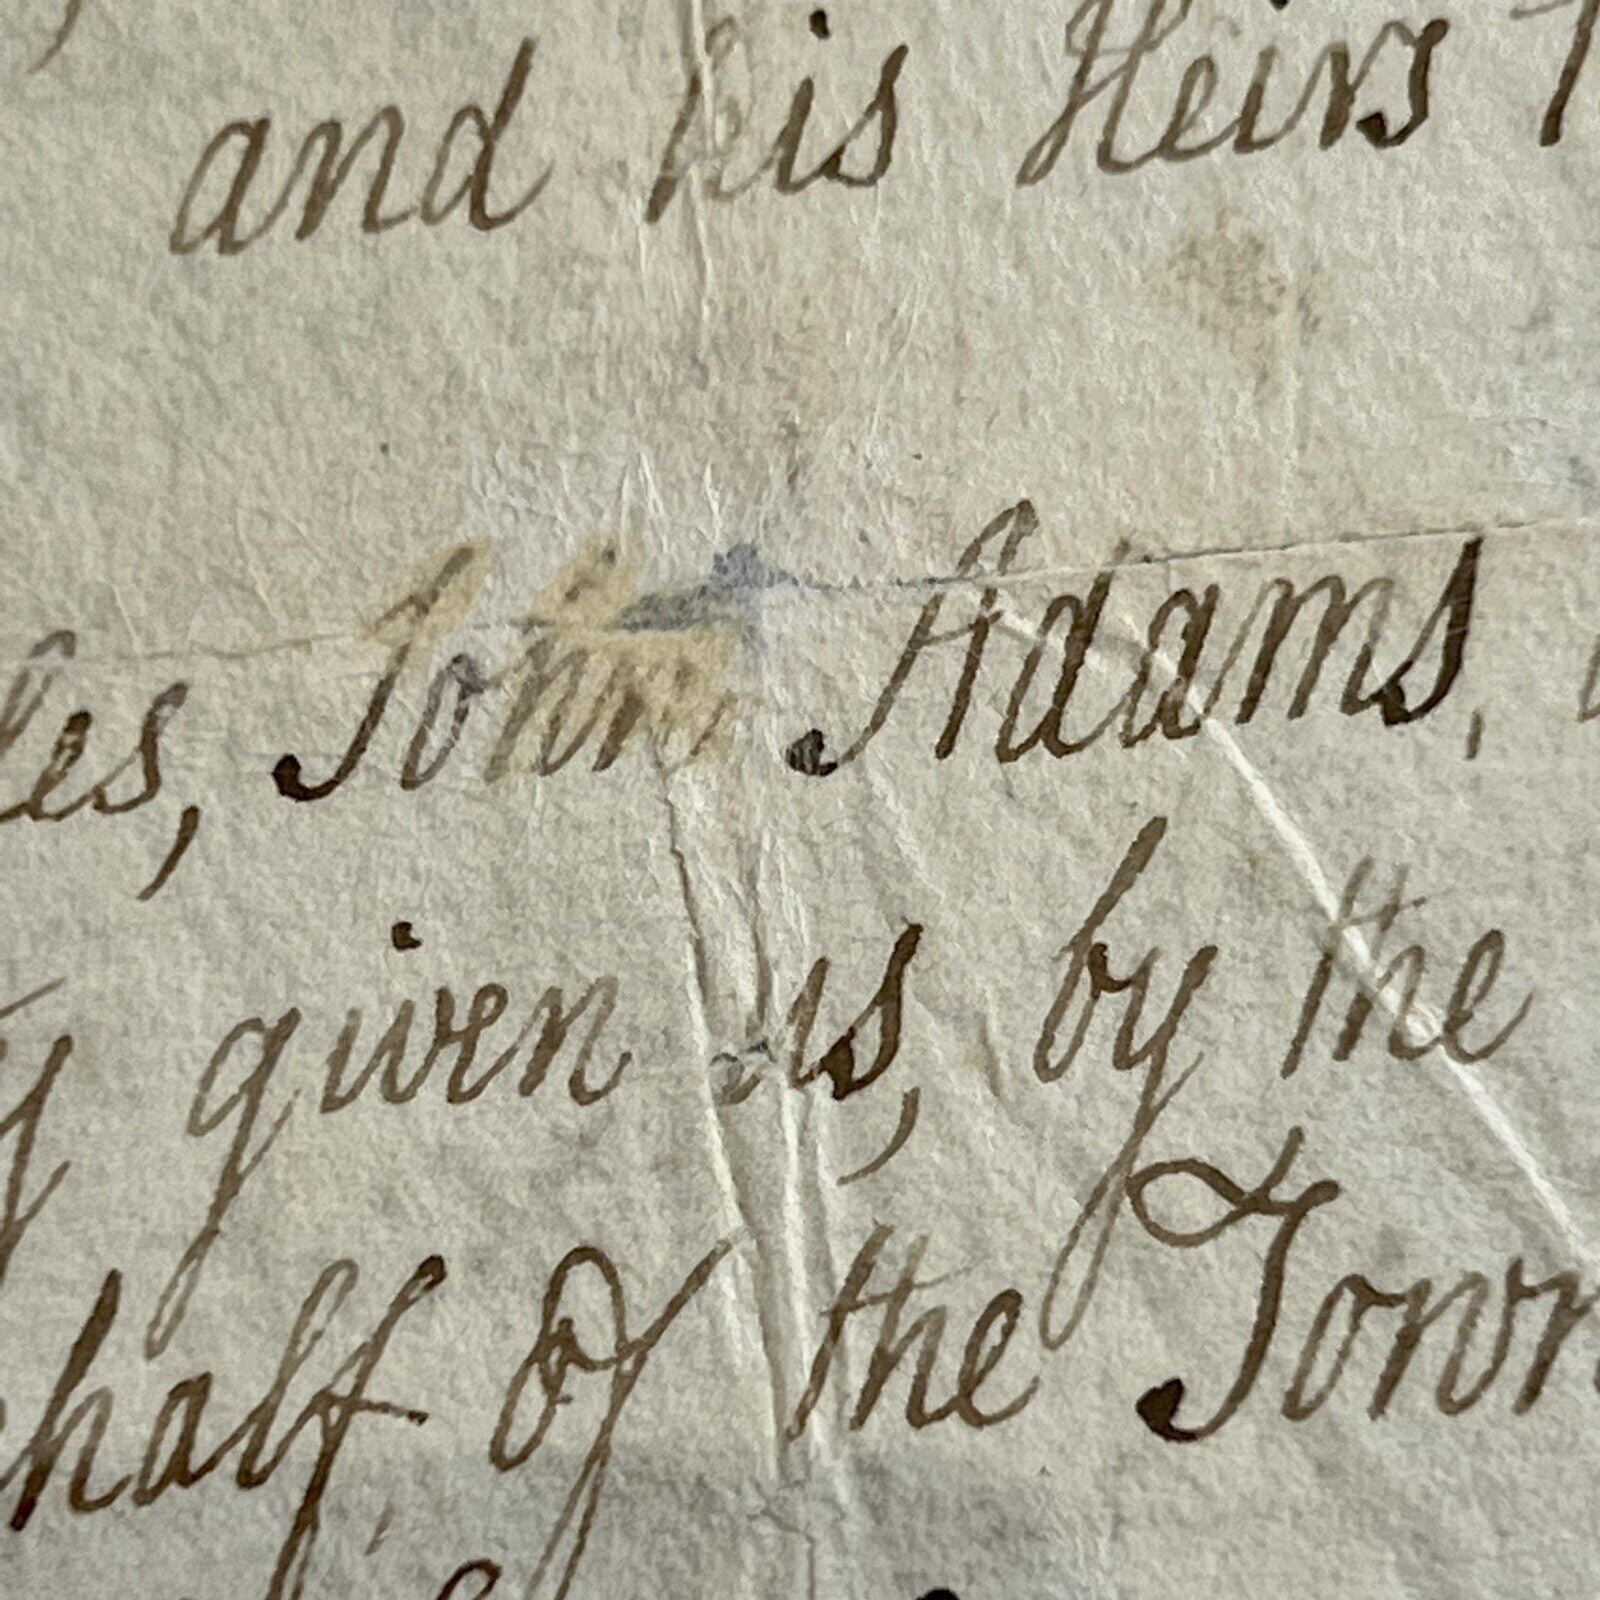 and his Heirs
John Adams,
given us, by the
half of the Town